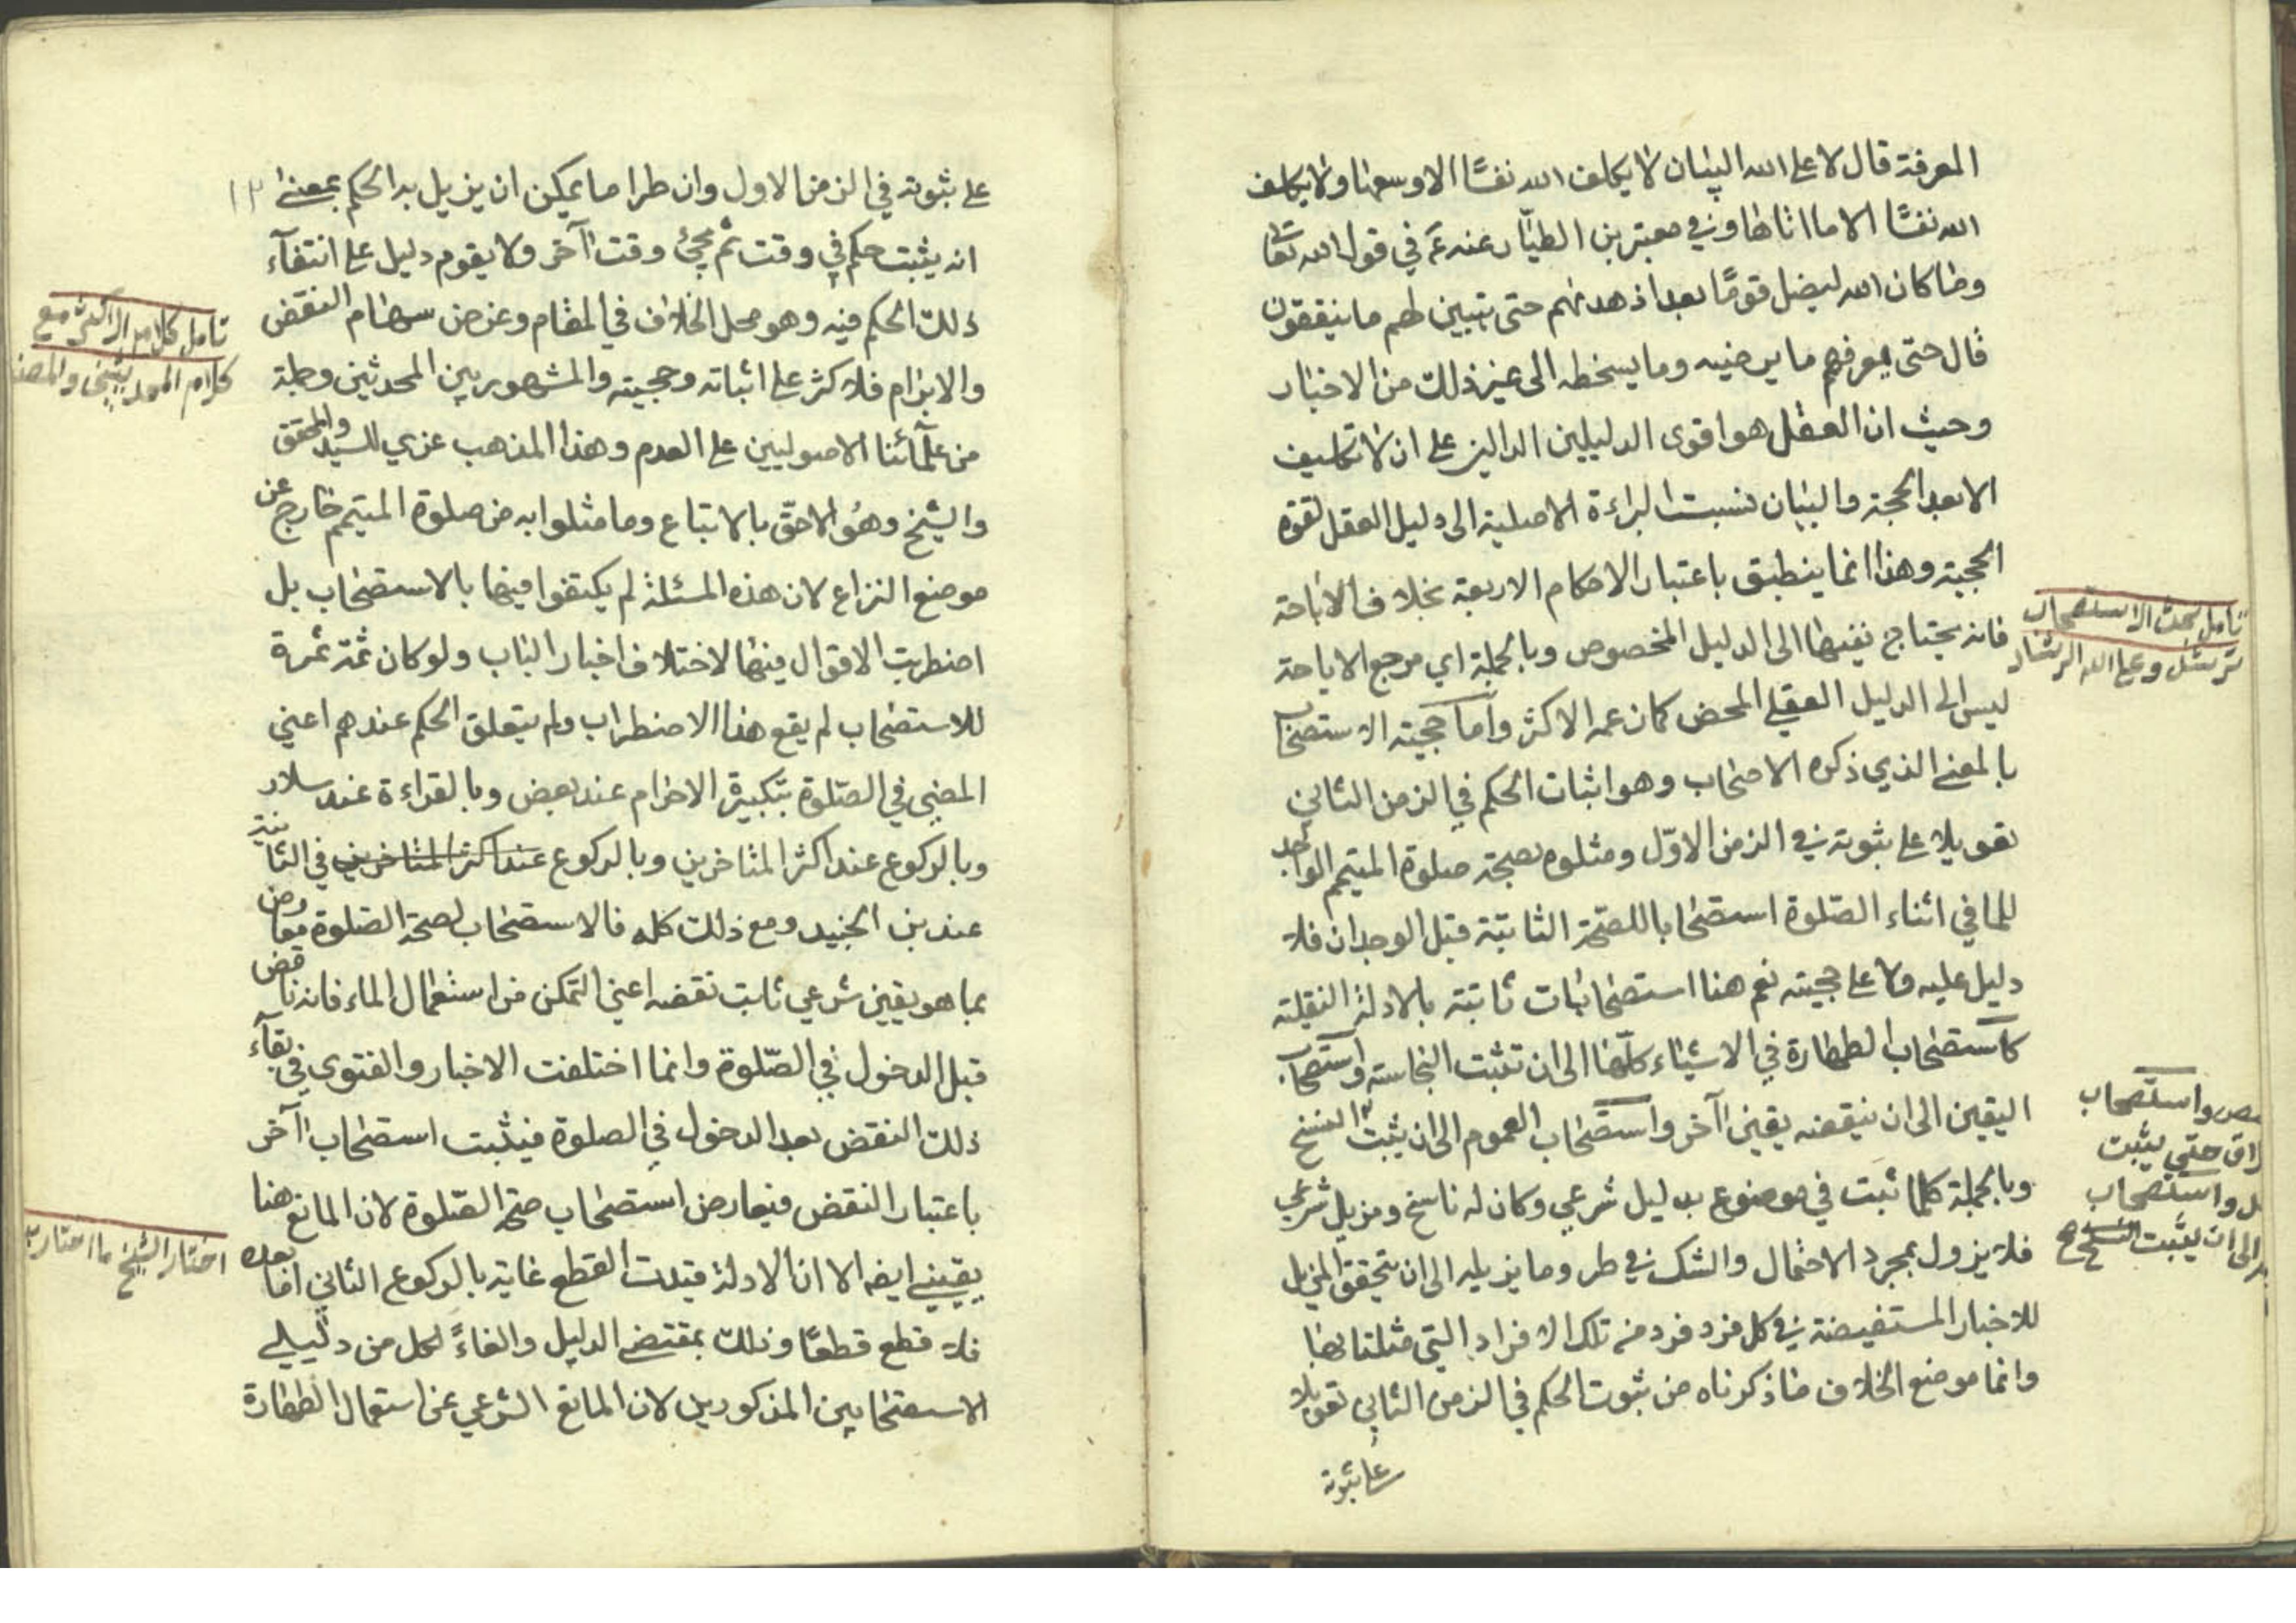 المعرفة قال لا على الله البيان لا يكلف الله نفسًا الا وسعها ولا يكلف
الله نفسًا الا ما اتاها وفي معتبر بن الطيّار عنه ع في قول الله تعا
وما كان الله ليضل قومًا بعد اذ هداهم حتى يتبين لهم ما يتقون
قال حتى يعرفهم ما يرضيه وما يسخطه الى غير ذلك من الاخبار
وحيث ان العقل هو اقوى الدليلين الدالين على ان لا تكليف
الا بعد الحجة والبيان نسبت البراءة الاصلية الى دليل العقل لقوة
الحجية وهذا انما ينطبق باعتبار الاحكام الاربعة بخلاف الاباحة
فانه يحتاج نفيها الى الدليل المخصوص وبالجملة اي مرجع الاباحة
ليس الى الدليل العقلي المحض كما زعمه الاكثر واما حجية الاستصحاب
بالمعنى الذي ذكره الاصحاب وهو اثبات الحكم في الزمن الثاني
تعويلا على ثبوته في الزمن الاوّل ومثلوه بصحة صلوة المتيمم الواجد
للما في اثناء الصّلوة استصحابا للصّحة الثابتة قبل الوجدان فلا
دليل عليه ولا على حجيته نعم هنا استصحابات ثابتة بالادلة النقلية
كاستصحاب الطهارة في الاشياء كلّها الى ان تثبت النجاسة واستصحاب
اليقين الى ان ينقضه يقين اآخر واستصحاب العموم الى ان يثبت النسخ
وبالجملة كلما ثبت في موضوع بدليل شرعي وكان له ناسخ ومزيل شرعي
فلا يزول بمجرد الاحتمال والشك في طرو ما يزيله الى ان يتحقق المزيل
للاخبار المستفيضة في كل فرد فرد من تلك الافراد التي مثلنا بها
وانما موضع الخلاف ما ذكرناه من ثبوت الحكم في الزمن الثاني تعويلا
على ثبوته
تامل بحث الاستصحاب
ترشد وعلى الله الرشاد
واستصحاب
حتى يثبت
واستصحاب
الى ان يثبت النسخ صح
على ثبوته في الزمن الاول وان طرا ما يمكن ان يزيل به الحكم بمعنى
انه يثبت حكم في وقت ثم يجئ وقت اآخر ولا يقوم دليل على انتفآء
ذلك الحكم فيه وهو محل الخلاف في المقام وعرض سهام النقض
والابرام فلاكثر على اثباته وحجيته والمشهور بين المحدثين وجلة
من علمآئنا الاصوليين على العدم وهذا المذهب عزي للسيد والمحقق
والشيخ وهُو الاحقّ بالاتباع وما مثلوا به من صلوة المتيمم خارج عن
موضع النزاع لان هذه المسئلة لم يكتفوا فيها بالاستصحاب بل
اضطربت الاقوال فيها لاختلاف اخبار الباب ولو كان ثمّة ثمرة
للاستصحاب لم يقع هذا الاضطراب ولم يتعلق الحكم عندهم اعني
المضي في الصّلوة بتكبيرة الاحرام عند بعض وبالقراءة عند سلار
وبالركوع عند اكثر المتاخرين وبالركوع عند اكثر المتاخرين في الثانية
عند بن الجنيد ومع ذلك كله فالاستصحاب لصحة الصّلوة معارض
بما هو يقين شرعي ثابت نقضه اعني التمكن من استعمال الماء فانه ناقض
قبل الدخول في الصّلوة وانما اختلفت الاخبار والفتوى في بقآء
ذلك النقض بعد الدخول في الصلوة فيثبت استصحاب اآخر
باعتبار النقض فيعارض استصحاب صحة الصّلوة لان المانع هنا
يقيني ايضا الا ان الادلة قيدت القطع غاية بالركوع الثاني اما بعده
فلا قطع قطعًا وذلك بمقتضى الدليل والغاءً لكل من دليلي
الاستصحابين المذكورين لان المانع الشرعي عن استعمال الطهارة
تامل كلام الاكثر مع
كلام المحدثين والمصنف
اختار الشيخ ما اختاره